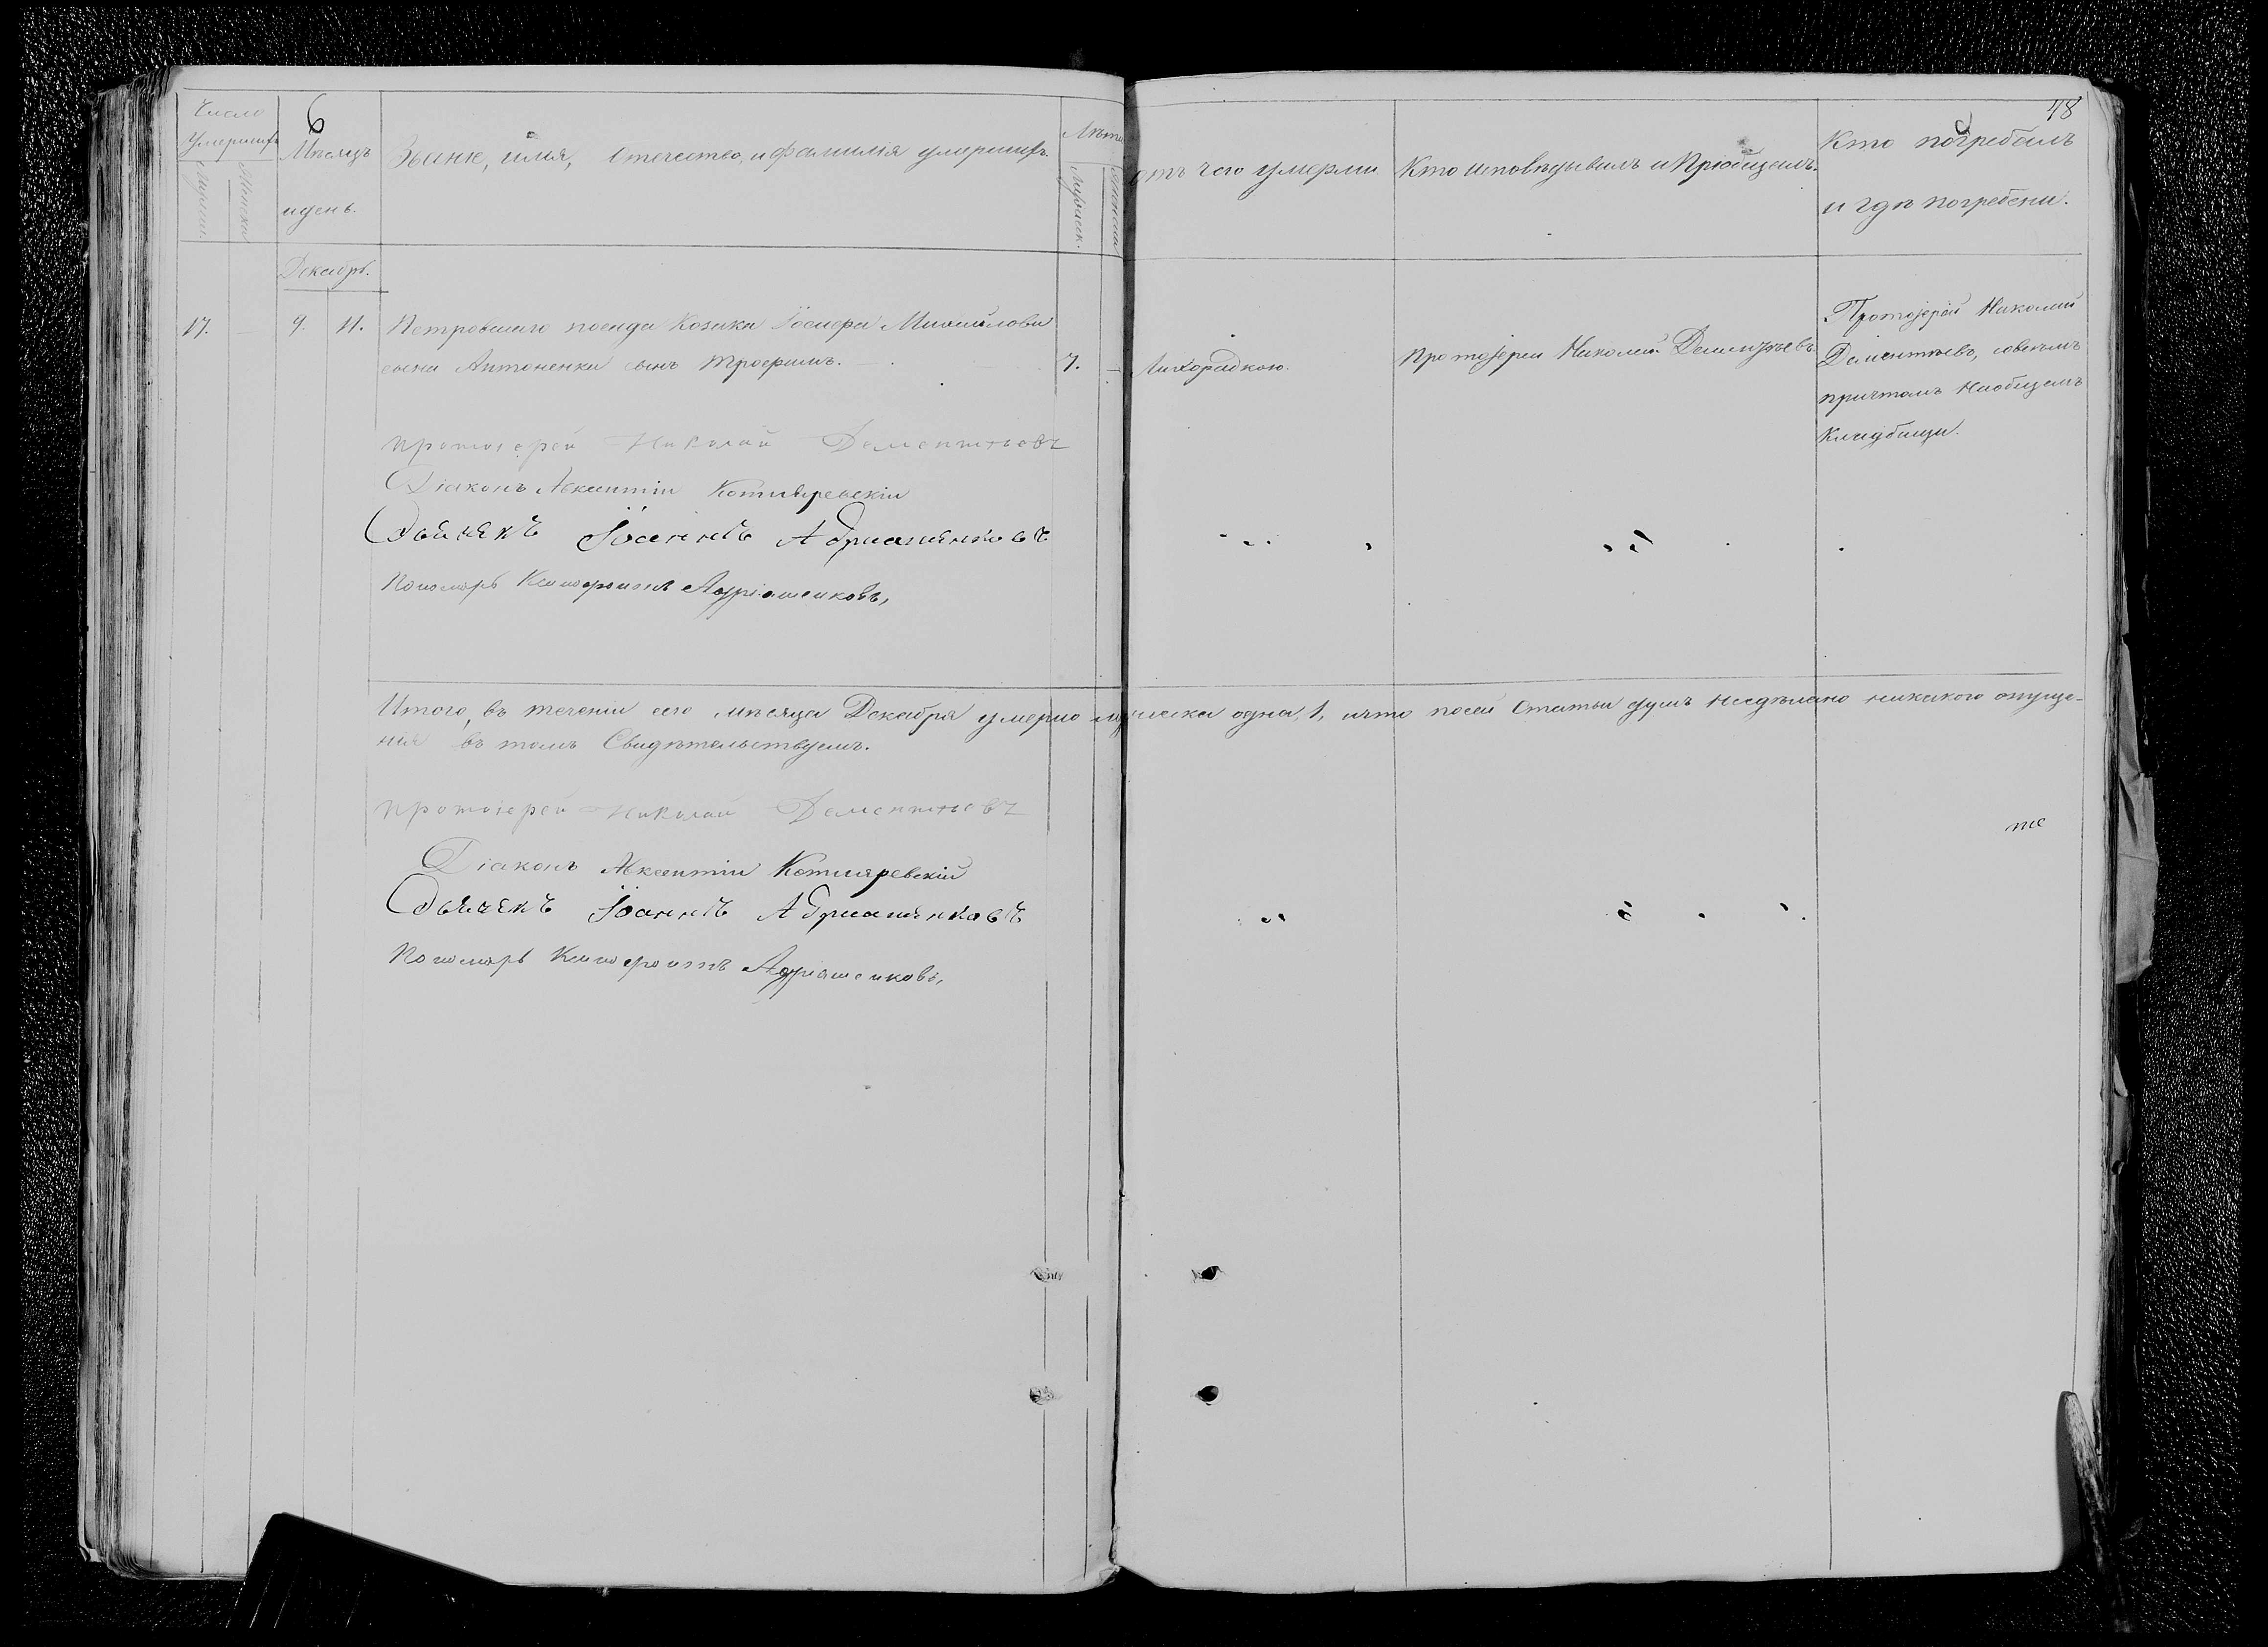 48
Число
Умершихъ
Мужеск.
Женска
6
Мѣсяцъ
и день.
Званіе, имя, отечество, и фамилія умершихъ.
Лѣта
Мужеск.
Женска
отъ чего умерли
Кто исповѣдывалъ и Пріобщалъ.
Кто погребалъ
и гдѣ погребены.
Декабрь.
17. 9. 11. Петровшаго посида Козака Іосифа Михайлова
сына Антоненка сынъ Трофимъ.
7.
Лихорадкою.
Протоіерей Николай Дементьевъ.
Протоіерей Николай
Дементьевъ, совсемъ
причтомъ Наобщемъ
Кладбищи.
протоіерей Николай Дементьевъ
Діаконъ Авксентій Котляревскій
Дьячекъ Іоаннъ Адриашенковъ
Пономарь Ксенофонтъ Адріашенковъ,
Итого, въ теченіи сего мѣсяца Декабря умерло мужеска одна, 1, ичто посей Статьи душъ несдѣлано никакого опуще-
нія въ томъ Свидѣтельствуемъ.
протоіерей Николай Дементьевъ
Діаконъ Авксентій Котляревскій
Дьячекъ Іоаннъ Адриашенковъ
Пономарь Ксенофонтъ Адріашенковъ,